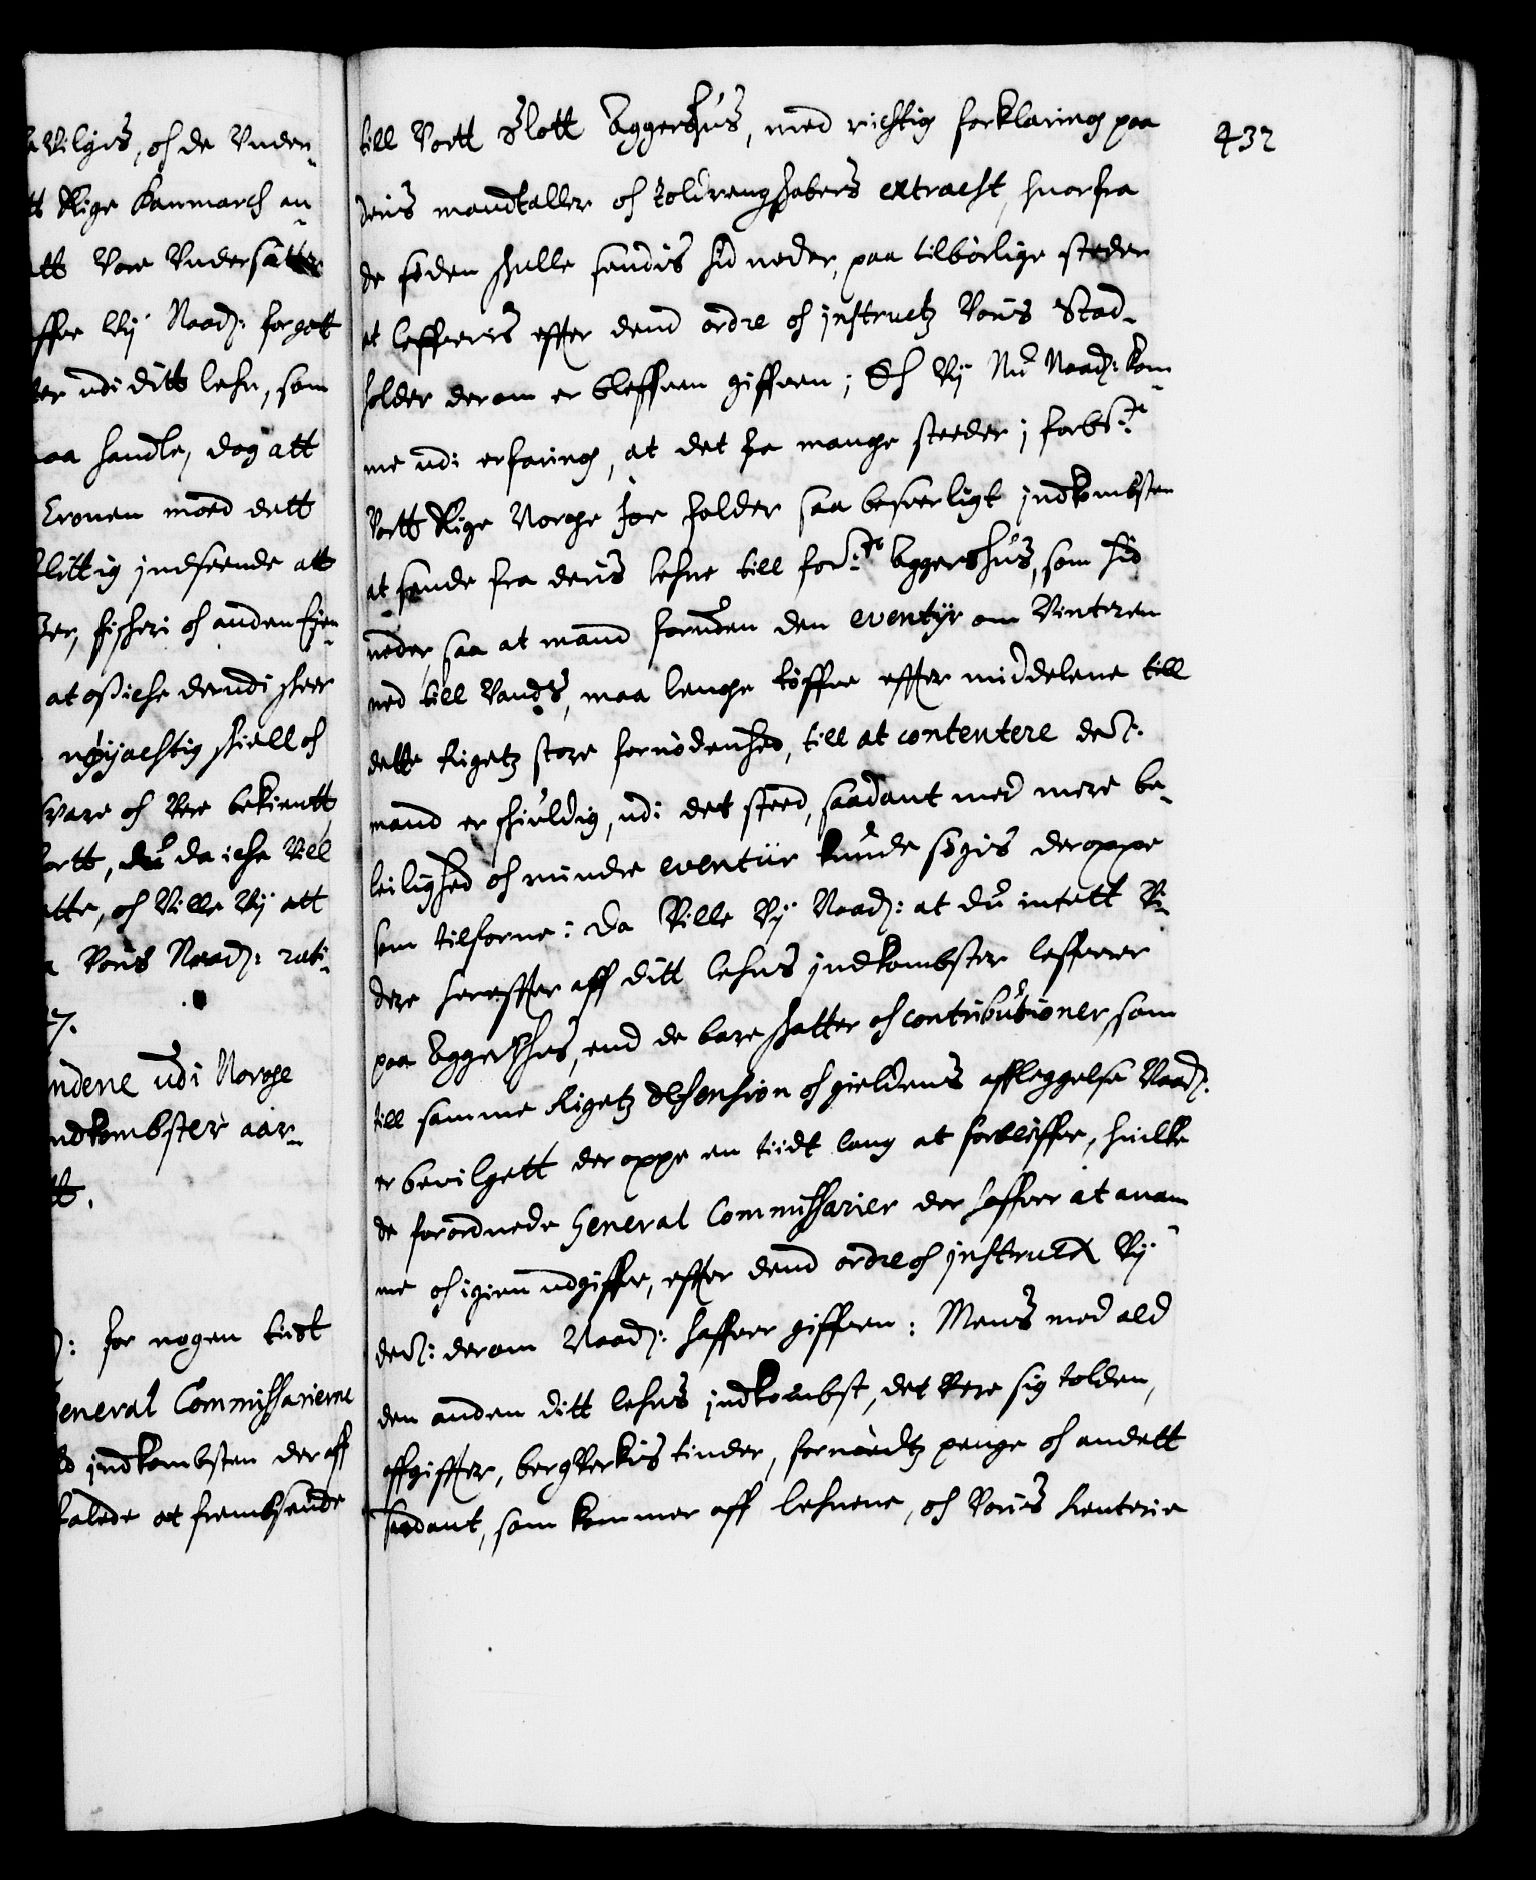 Vilgis, oc de Vnder-
Rige Danmarch an-
att Vore Vndersåtter
Vy Naad: forgott
udi ditt lehn, som
maa handle, dog att
Cronen med dett
flittig indseende att
fischeri oc anden Eyen-
at osiche derudi skeer
nøyachtig skiell oc
svare oc Vere bekientt
du da iche Vill
oc Ville Vy att
Voris Naad: rati-
udi Norge
indkombster aar-
tt.
for nogen tiidt
General Commissarierne
indkombsten der aff
at frembsende
432
till Vortt Slott Aggershus, med richtig forklaring paa
deris mandtaller oc toldrengskabers extracht, huorfra
de siden skulle sendis hid neder, paa tilbørlige steder
at leffveris effter dend ordre oc instructz Voris Stad-
holder derom er bleffven giffven; Oc Vy Nu Naad: kom-
me udi erfaring, at det fra mange steeder i forbete
Vortt Rige Norge for falder saa besverligt indkombsten
at sende fra deris lehne till forte Aggershus, som hid
neder, saa at mand foruden den eventyr om Vinteren
ned till Vands, maa lenge tøffve effter middelene till
dette Rigetz store fornødenhed, till at contentere dem:
mand er skuldig, udi det steed, saadant med mere be-
leilighed oc mindre eventiir kunde søgis deroppe
som tilforne: Da Ville Vy Naad: at du intett Vi-
dere hereffter aff ditt lehns indkombster leffverer
paa Aggershus, end de bare skatter oc contributioner, som
till samme Rigetz defension oc gieldens affleggelse Naad:
er bevilgett der oppe en tiidt lang at forbliffve, huilke
de forordnede General Commissarier der haffver at anam
me oc igien udgiffve, effter dend ordre oc instructz Vy
dem: derom Naad: haffver giffven: Mens med ald
den anden ditt lehns indkombst, det Vere sig tolden,
affgiffter, bergVerkis tinder, fornødtz penge oc andett
saadant, som kommer aff lehnene, oc Voris Renterie